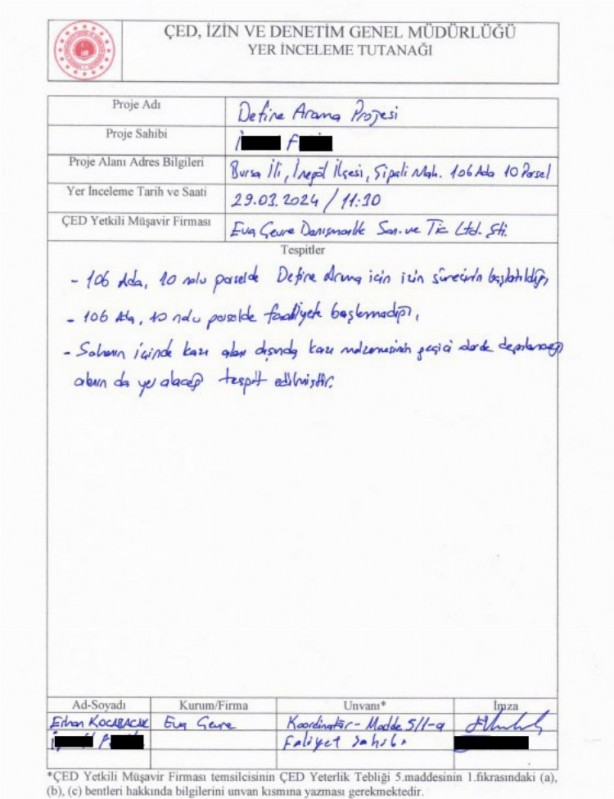 ÇED, İZİN VE DENETİM GENEL MÜDÜRLÜĞÜ
YER İNCELEME TUTANAĞI
Proje Adı
Define Arama Projesi
Proje Sahibi
Proje Alanı Adres Bilgileri
Bursa İli, İnegöl İlçesi, Şipali Mah. 106 Ada 10 Parsel
Yer İnceleme Tarih ve Saati
29.03.2024 / 11:30
ÇED Yetkili Müşavir Firması
Eva Çevre Danışmanlık San. ve Tic Ltd. Şti.
Tespitler
- 106 Ada, 10 nolu parselde Define Arama için izin sürecinin başlatıldığı,
- 106 Ada, 10 nolu parselde faaliyete başlanmadığı,
- Sahanın içinde kazı alanı dışında kazı malzemesinin geçici olarak depolanacağı
alanın da yer alacağı tespit edilmiştir.
Ad-Soyadı Kurum/Firma Unvanı* İmza
Erhan KOCABACAK Eva Çevre Koordinatör - Madde 5/1-a
Faliyet Sahibi
*ÇED Yetkili Müşavir Firması temsilcisinin ÇED Yeterlik Tebliği 5.maddesinin 1.fıkrasındaki (a),
(b), (c) bentleri hakkında bilgilerini unvan kısmına yazması gerekmektedir.